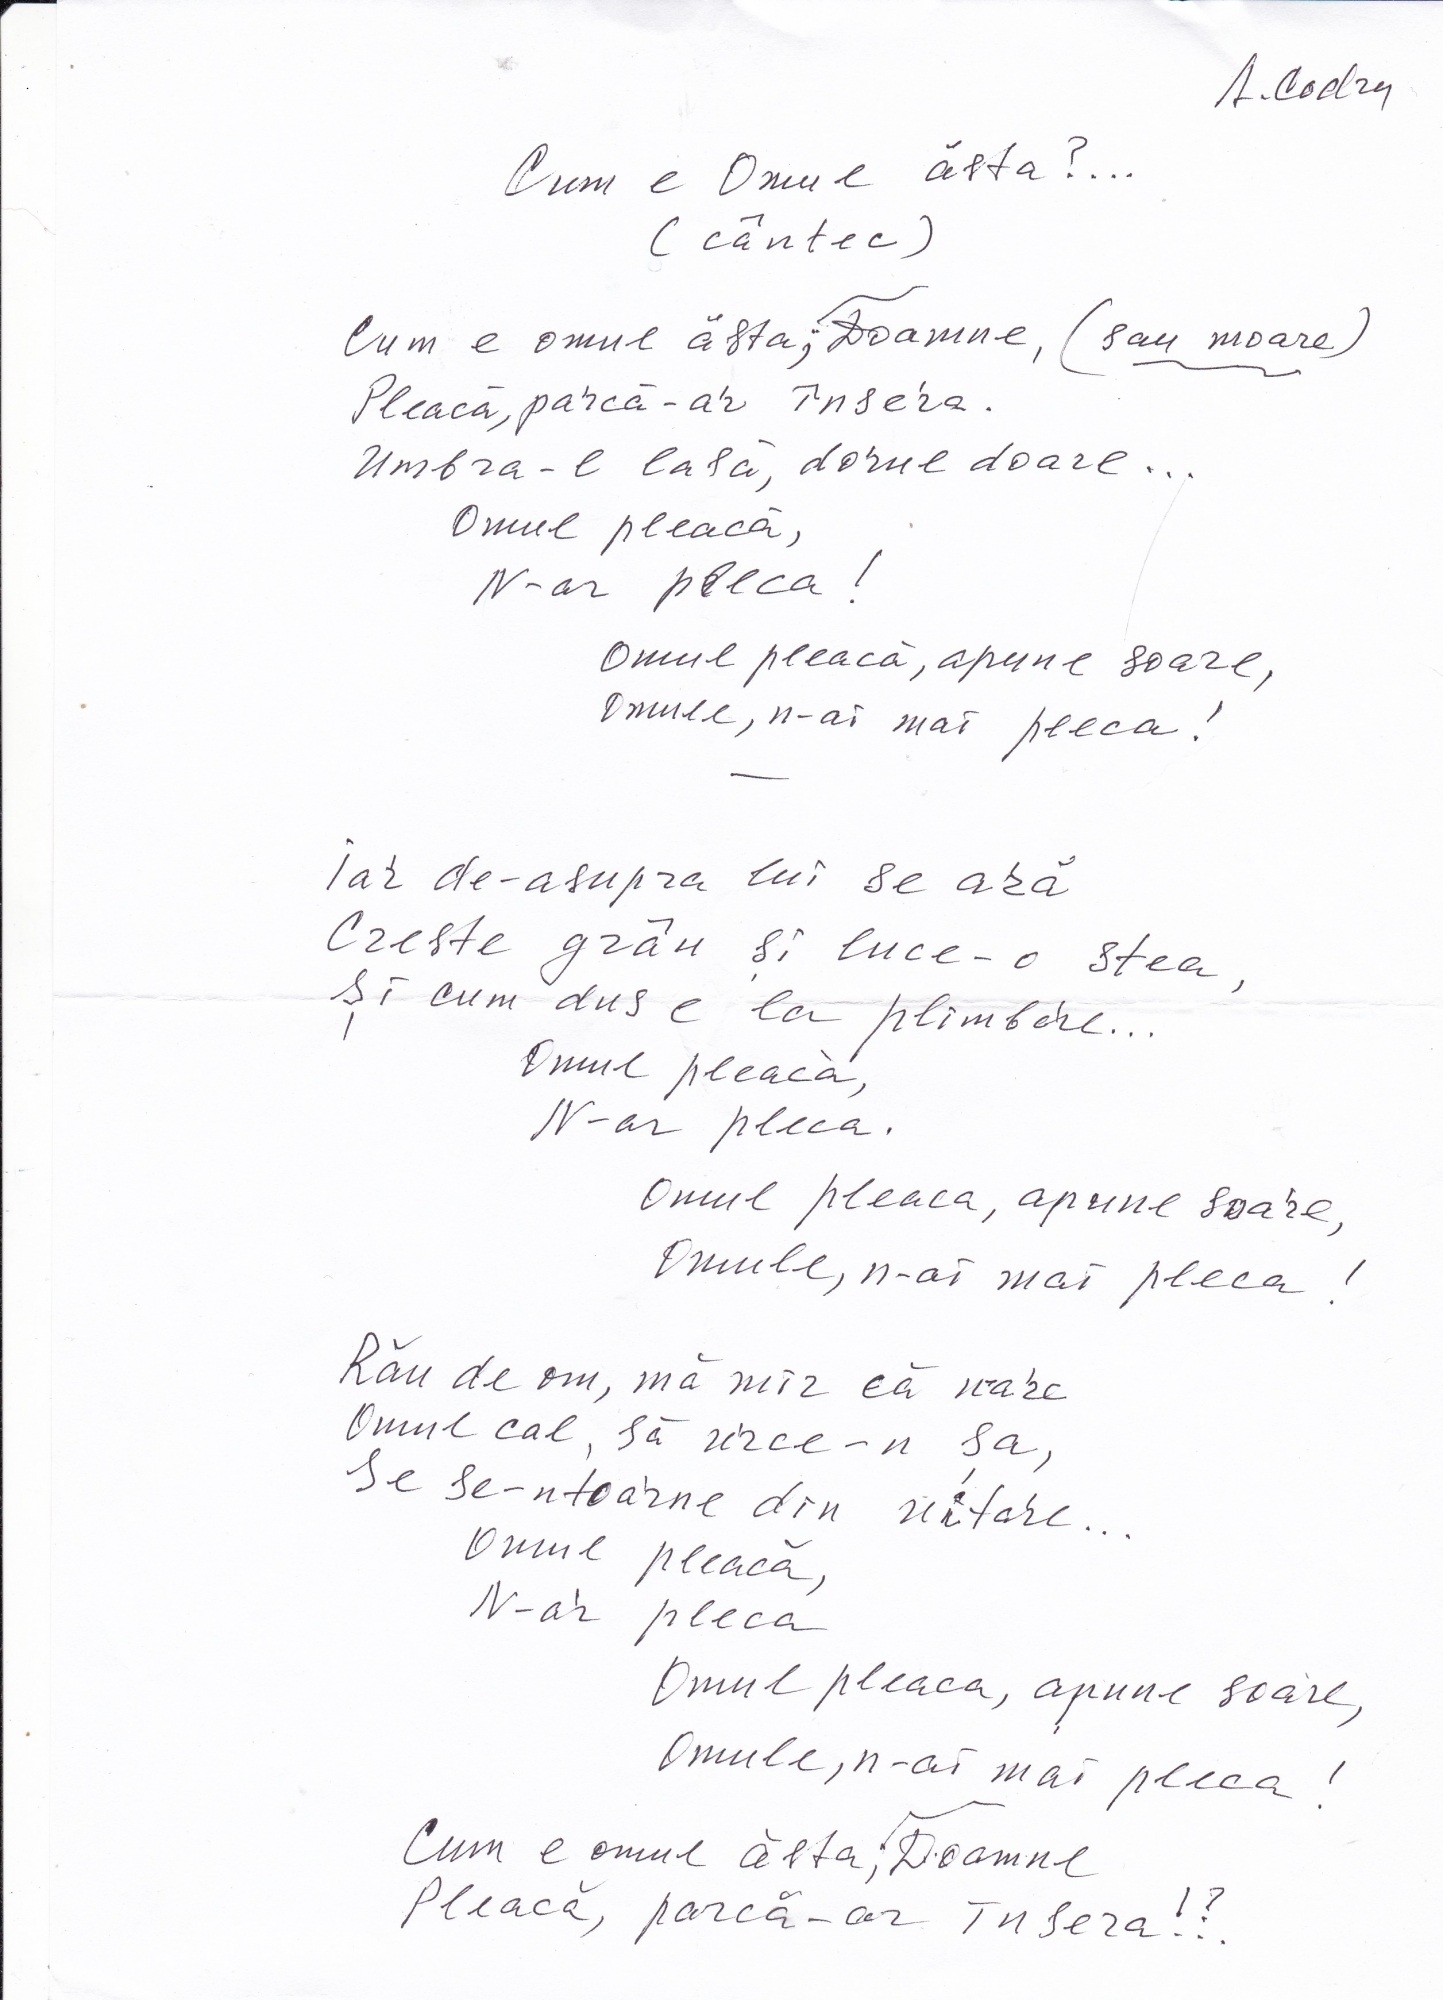 A. Codru
Cum e Omul ăsta?...
(cântec)
Cum e omul ăsta, Doamne, (sau moare)
Pleacă, parcă-ar însera.
Umbra-l lasă, dorul doare...
Omul pleacă,
N-ar pleca!
Omul pleacă, apune soare,
Omule, n-ai mai pleca!
—
Iar de-asupra lui se ară
Creste grâu și luce-o stea,
Și cum dus e la plimbare...
Omul pleacă,
N-ar pleca.
Omul pleaca, apune soare,
Omule, n-ai mai pleca!
Rău de om, mă mir că n-are
Omul cal, să urce-n șa,
Se se-ntoarne din uitare...
Omul pleacă,
N-ar pleca
Omul pleaca, apune soare,
Omule, n-ai mai pleca!
Cum e omul ăsta, Doamne
Pleacă, parcă-ar însera!?..